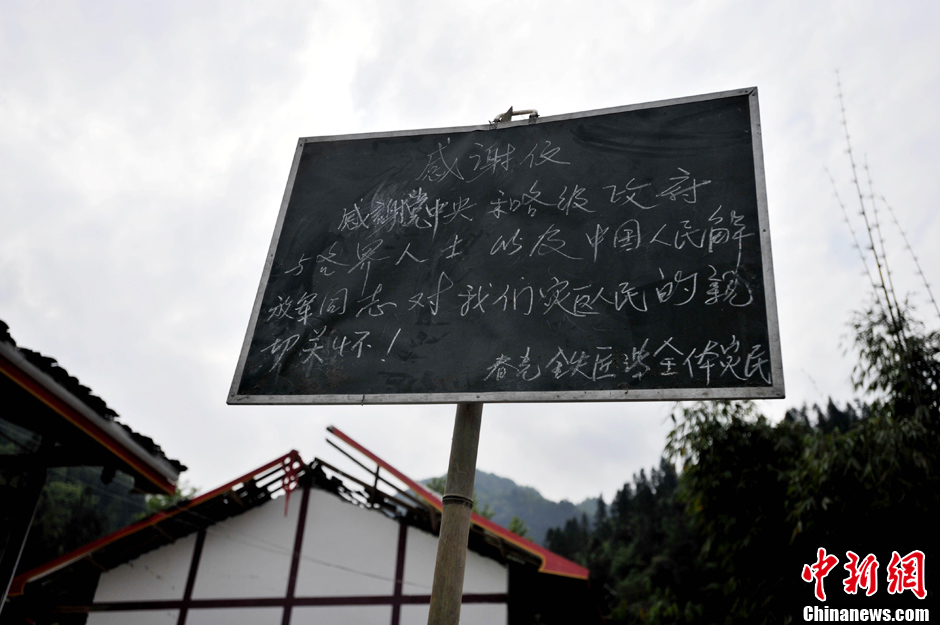 感谢信
感謝党中央 和各级政府
与各界人士 以及中国人民解
放军同志对我们灾区人民的親
切关怀！
春光 全体灾民
中新网
Chinanews.com